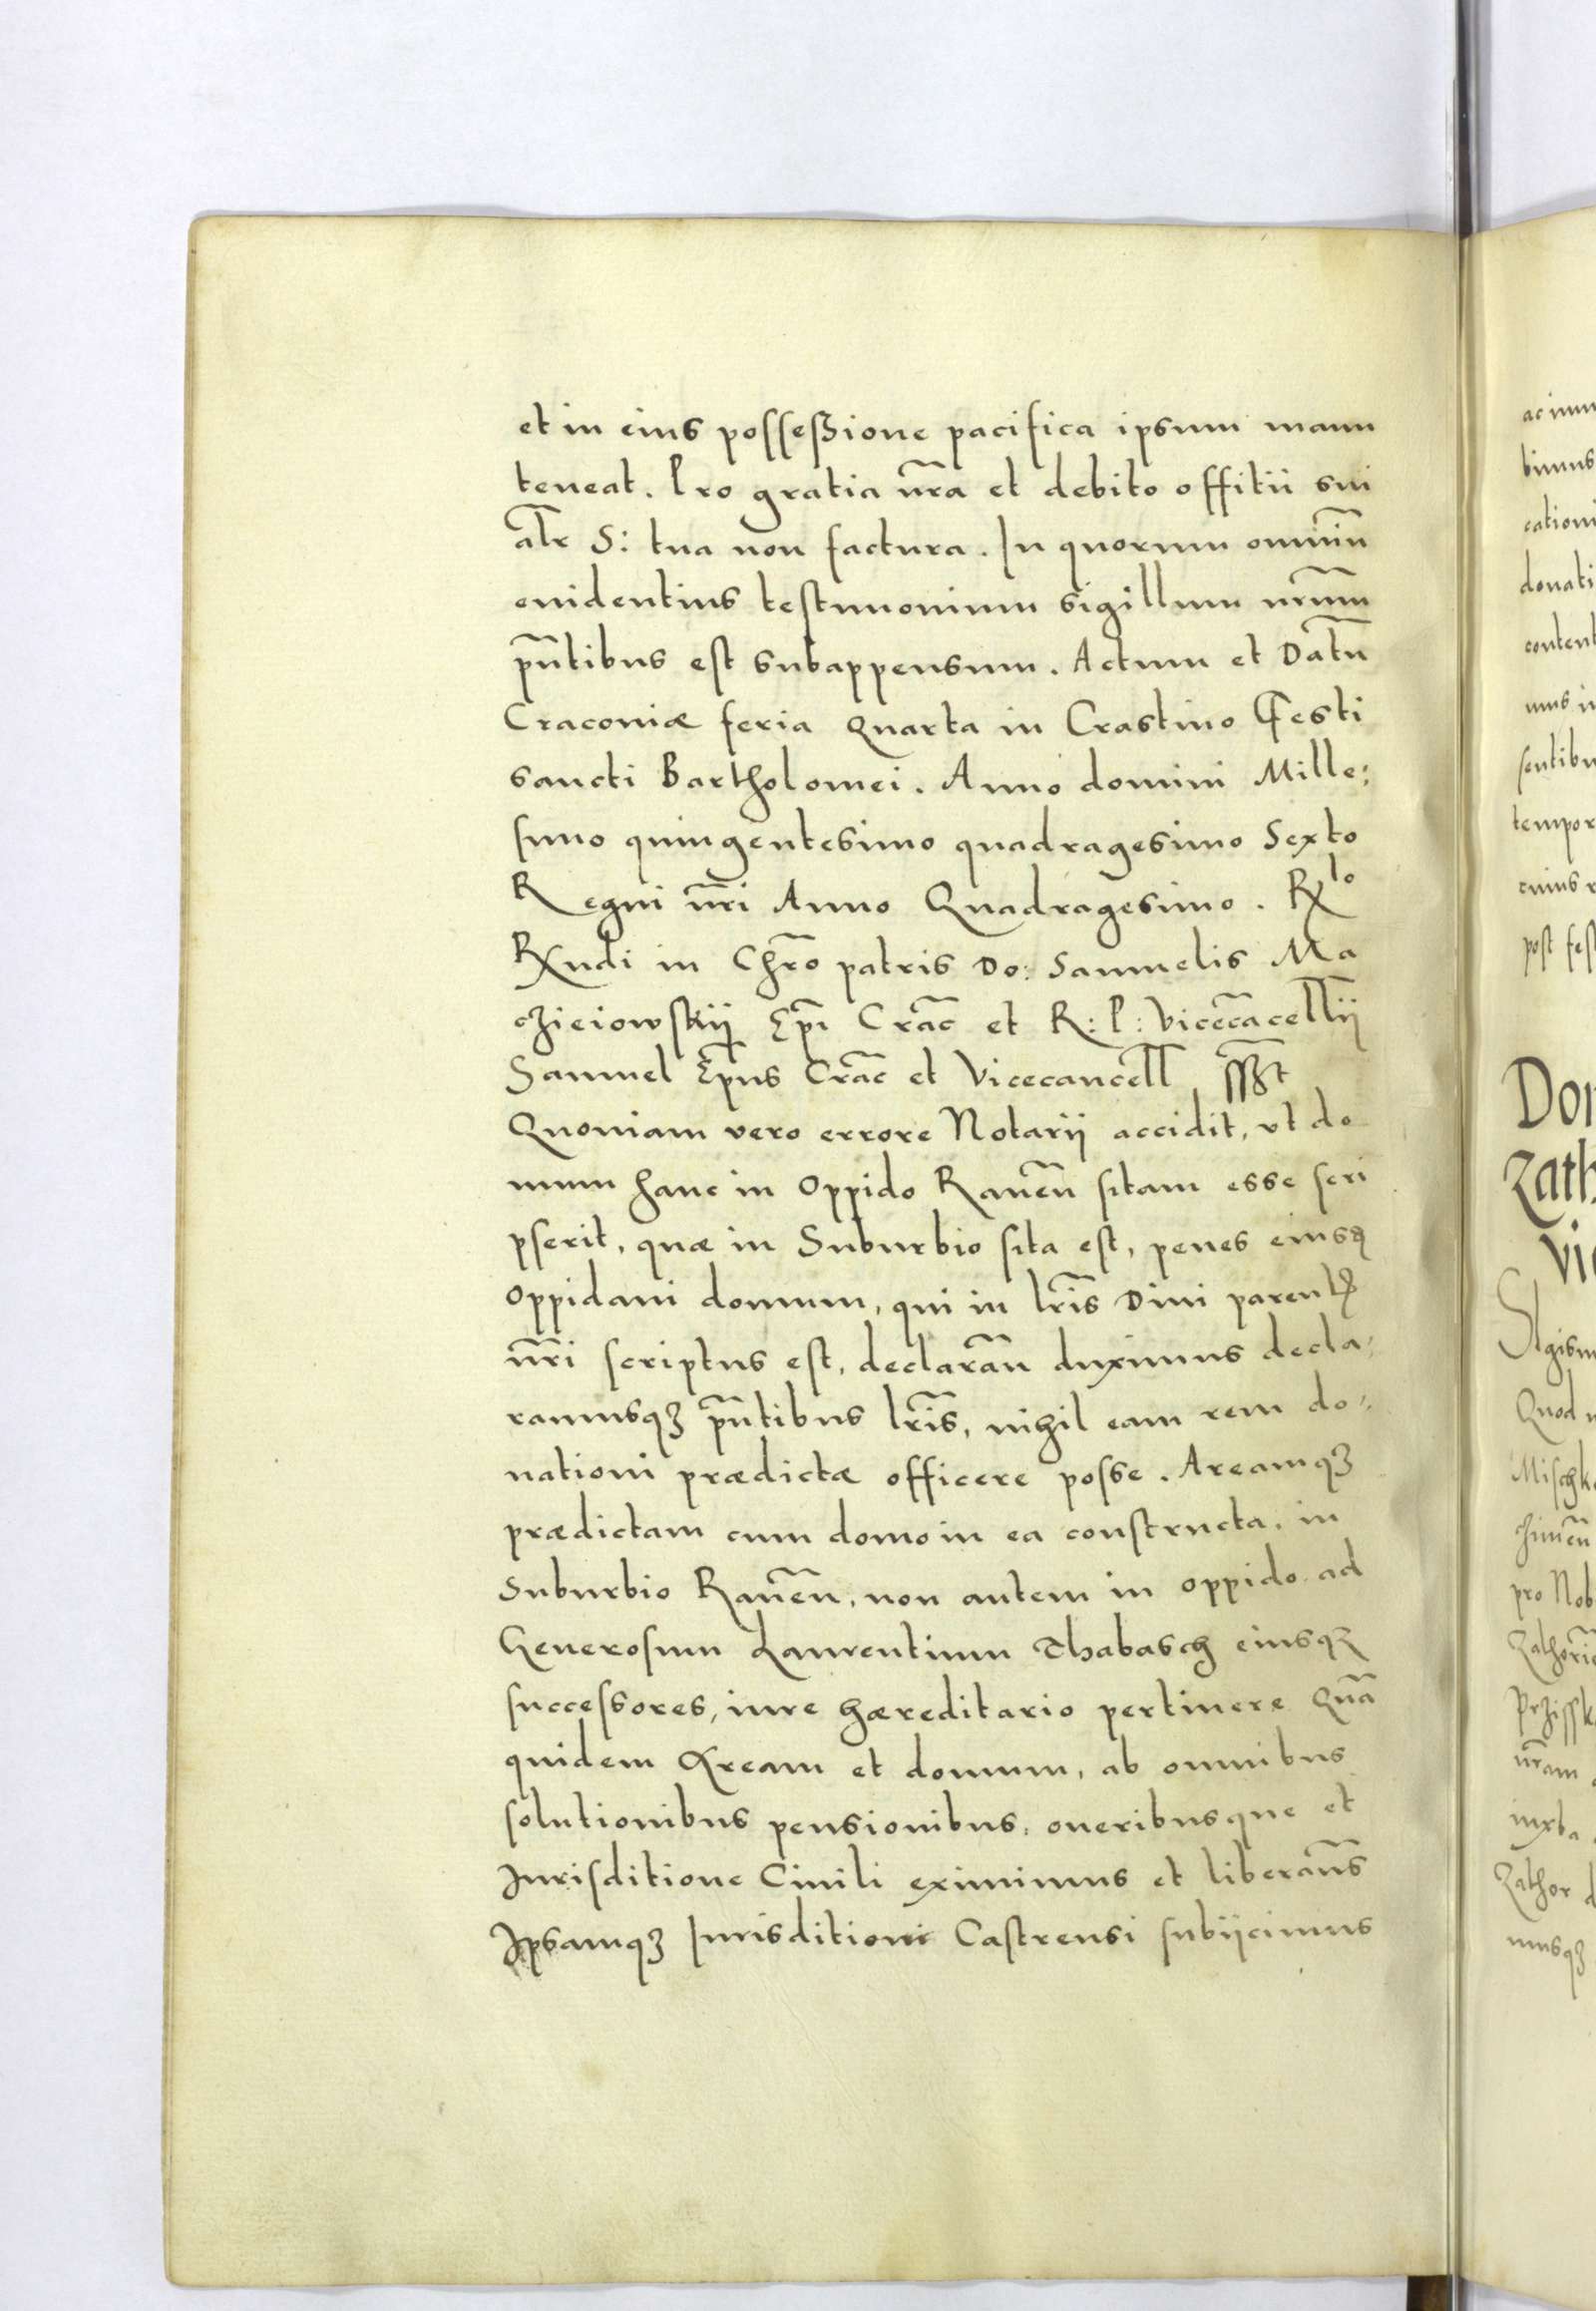 et in eius possessione pacifica ipsum manu
teneat. Pro gratia nr̃a et debito offitii sui
alr̃ S: tua non factura. In quorum omniũ
euidentius testimonium sigillum nrũm
pñtibus est subappensum. Actum et Datũ
Cracouiæ feria Quarta in Crastino Festi
sancti Bartholomei. Anno domini Mille:
simo quingentesimo quadragesimo Sexto
Regni nr̃i Anno Quadragesimo. Rlo
Rndi in Chr̃o patris Do: Samuelis Ma
czieiowskij Ep̃i Crac̃ et R: P: Vicecãcellii
Samuel Ep̃us Crac̃ et Vicecancell̃ sszt
Quoniam vero errore Notarij accidit, vt do
mum hanc in Oppido Rauen̄ sitam esse scri
pserit, quæ in Suburbio sita est, penes eiusq
Oppidani domum, qui in lr̃is Diui parentis
nr̃i scriptus est, declarañ duximus decla:
ramusqz pñtibus lr̃is, nihil eam rem do:
nationi prædictæ officere posse. Areamqz
prædictam cum domo in ea constructa, in
Suburbio Rauen̄, non autem in oppido ad
Generosum Laurentium Thabasch eiusqz
successores, iure hæreditario pertinere Quã
quidem Aream et domum, ab omnibus
solutionibus pensionibus, oneribusque et
Jurisditione Ciuili eximimus et liberam̃s
Ipsamqz Jurisditioni Castrensi subijcimus